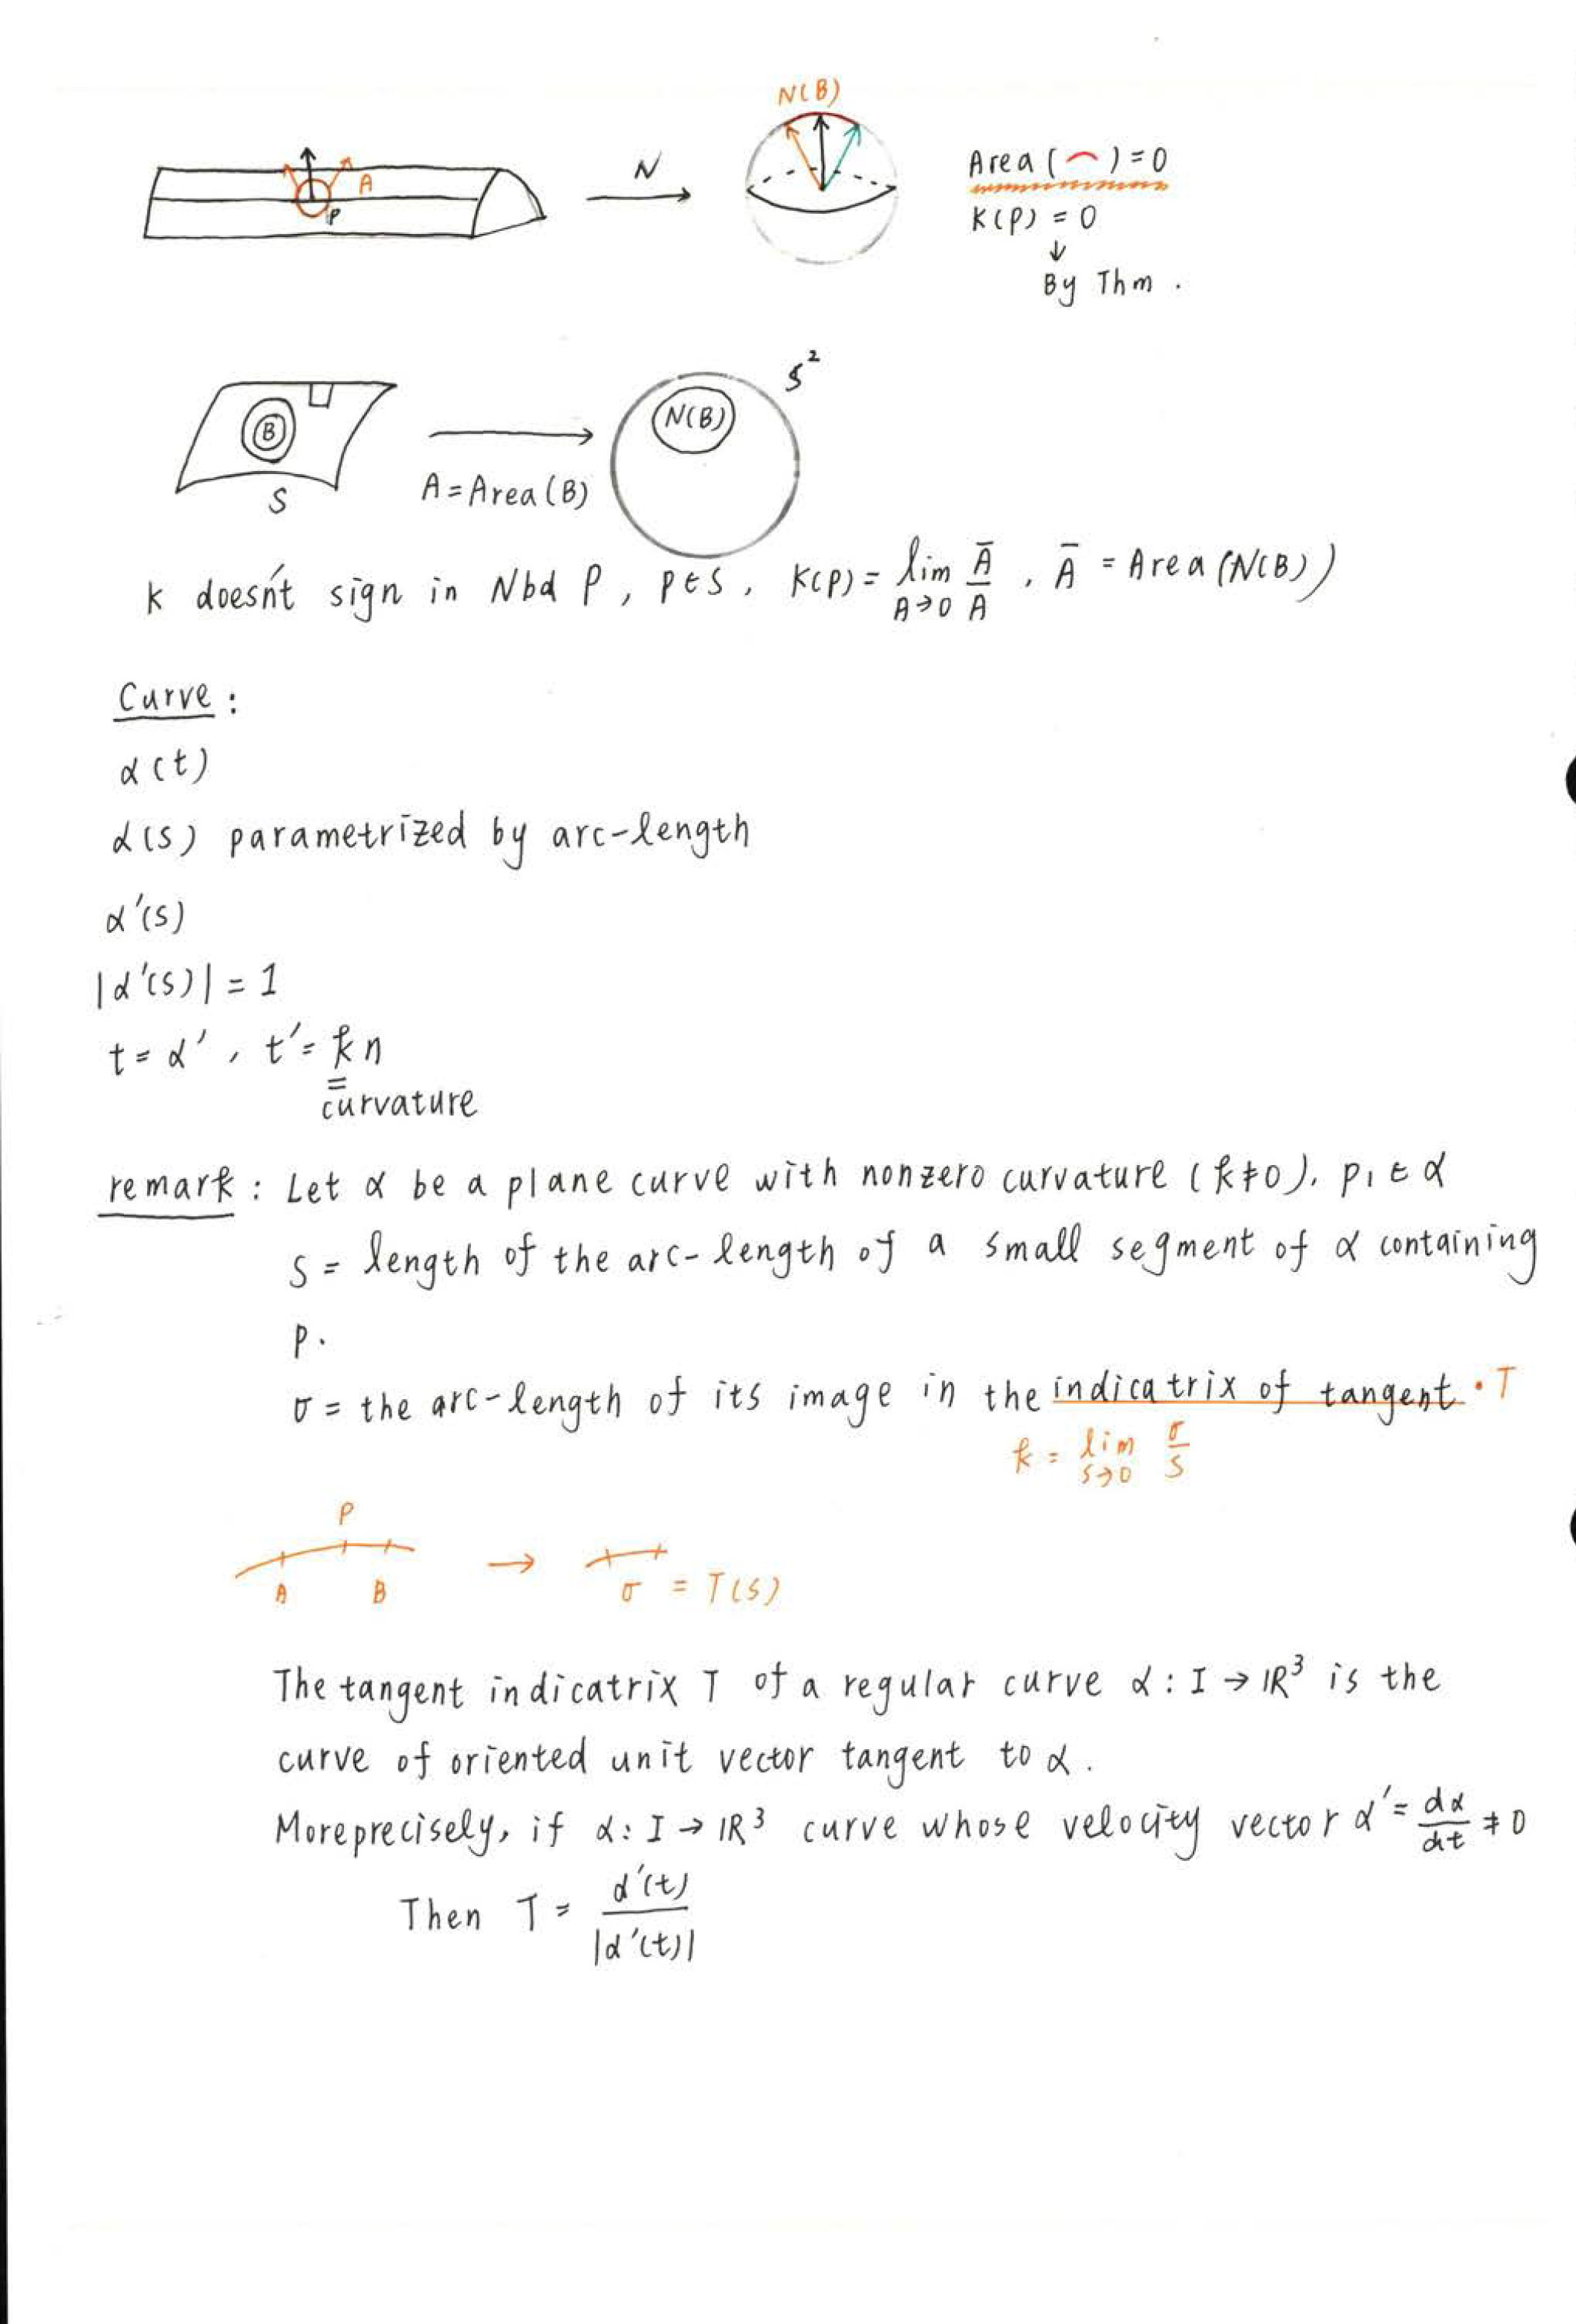 N(B)
A
P
N
Area (⌢) = 0
K(P) = 0
↓
By Thm .
B
S
A = Area(B)
N(B)
S²
K doesn't sign in Nbd P , p∈S , K(p) = lim_{A→0} Ā/A , Ā = Area (N(B))
Curve :
α(t)
α(s) parametrized by arc-length
α'(s)
|α'(s)| = 1
t = α' , t' = k n
=
curvature
remark : Let α be a plane curve with nonzero curvature (k≠0), p₁ ∈ α
S = length of the arc-length of a small segment of α containing
p .
σ = the arc-length of its image in the indicatrix of tangent . T
k = lim_{s→0} σ/s
P
A B → σ = T(s)
The tangent indicatrix T of a regular curve α : I → ℝ³ is the
curve of oriented unit vector tangent to α .
Moreprecisely, if α : I → ℝ³ curve whose velocity vector α' = dα/dt ≠ 0
Then T = α'(t)/|α'(t)|